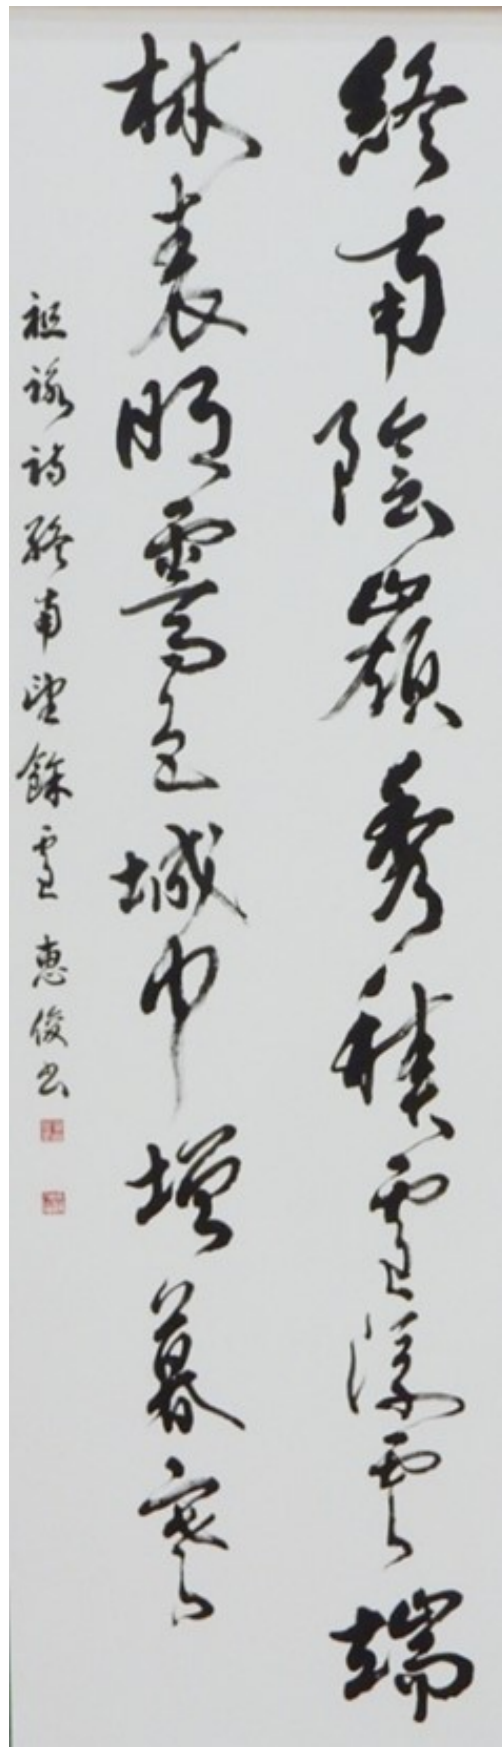 終南陰嶺秀積雪浮雲端
林表明霽色城中增暮寒
祖詠詩終南望餘雪 惠俊書